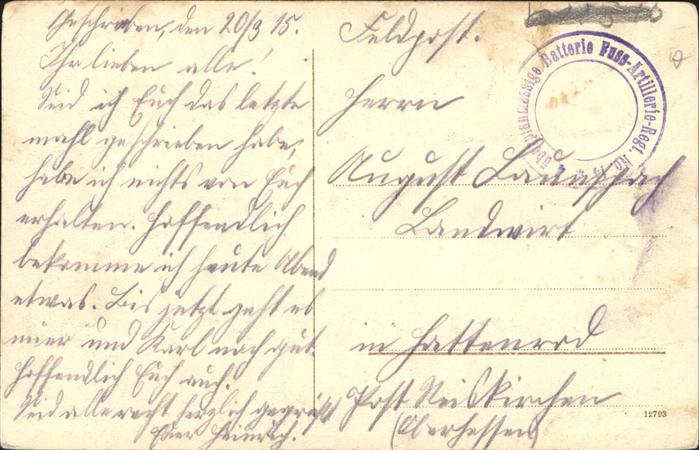 Geschrieben, den 20/3 15.
Ihr lieben alle!
Seid ich Euch das letzte
mahl geschrieben habe,
habe ich nichts von Euch
erhalten. Hoffendlich
bekomme ich heute Abend
etwas. Bis jetzt geht es
mier und Karl noch gut.
Hoffendlich Euch auch.
Seid alle recht herzlich gegrüßt
Euer Heinrich.
Feldpost.
Herrn
August Launspach
Landwirt
in Hattenrod
Post Reiskirchen
(Oberhessen)
überplanmässige Batterie Fuss-Artillerie-Regt. No.
12793